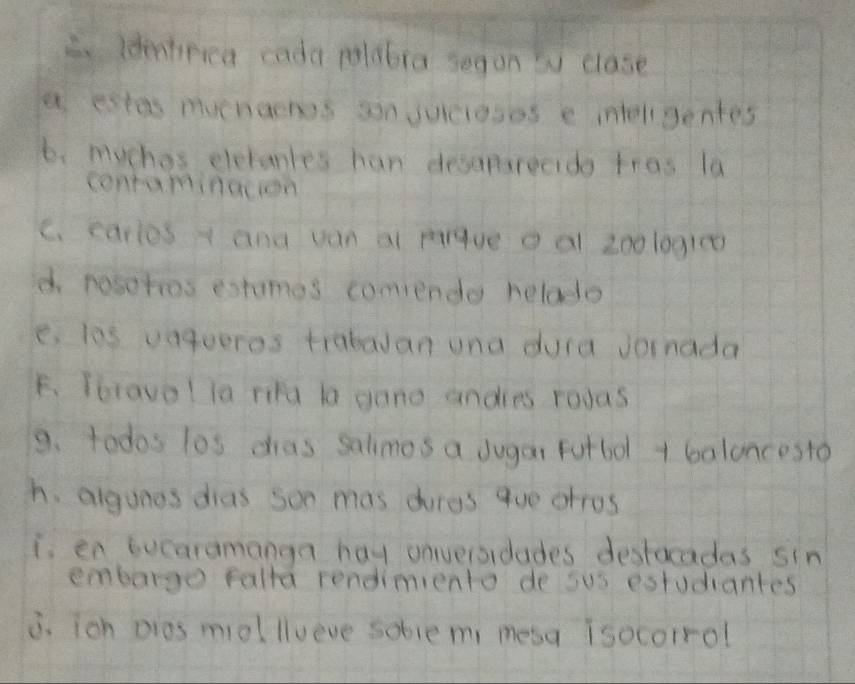 2. Identifica cada palabra segun su clase
a. estas muchachos son juiciosos e inteligentes
b. muchos elefantes han desaparecido tras la
contaminacion
c. carlos y ana van al parque o al zoologico
d. nosotros estamos comiendo helado
e. los vaqueros trabajan una dura jornada
F. ¡bravo! la rifa la gano andres rojas
g. todos los dias salimos a jugar futbol y baloncesto
h. algunos dias son mas duros que otros
i. en bucaramanga hay universidades destacadas sin
embargo falta rendimiento de sus estudiantes
j. ¡oh Dios mio! llueve sobre mi mesa ¡socorro!